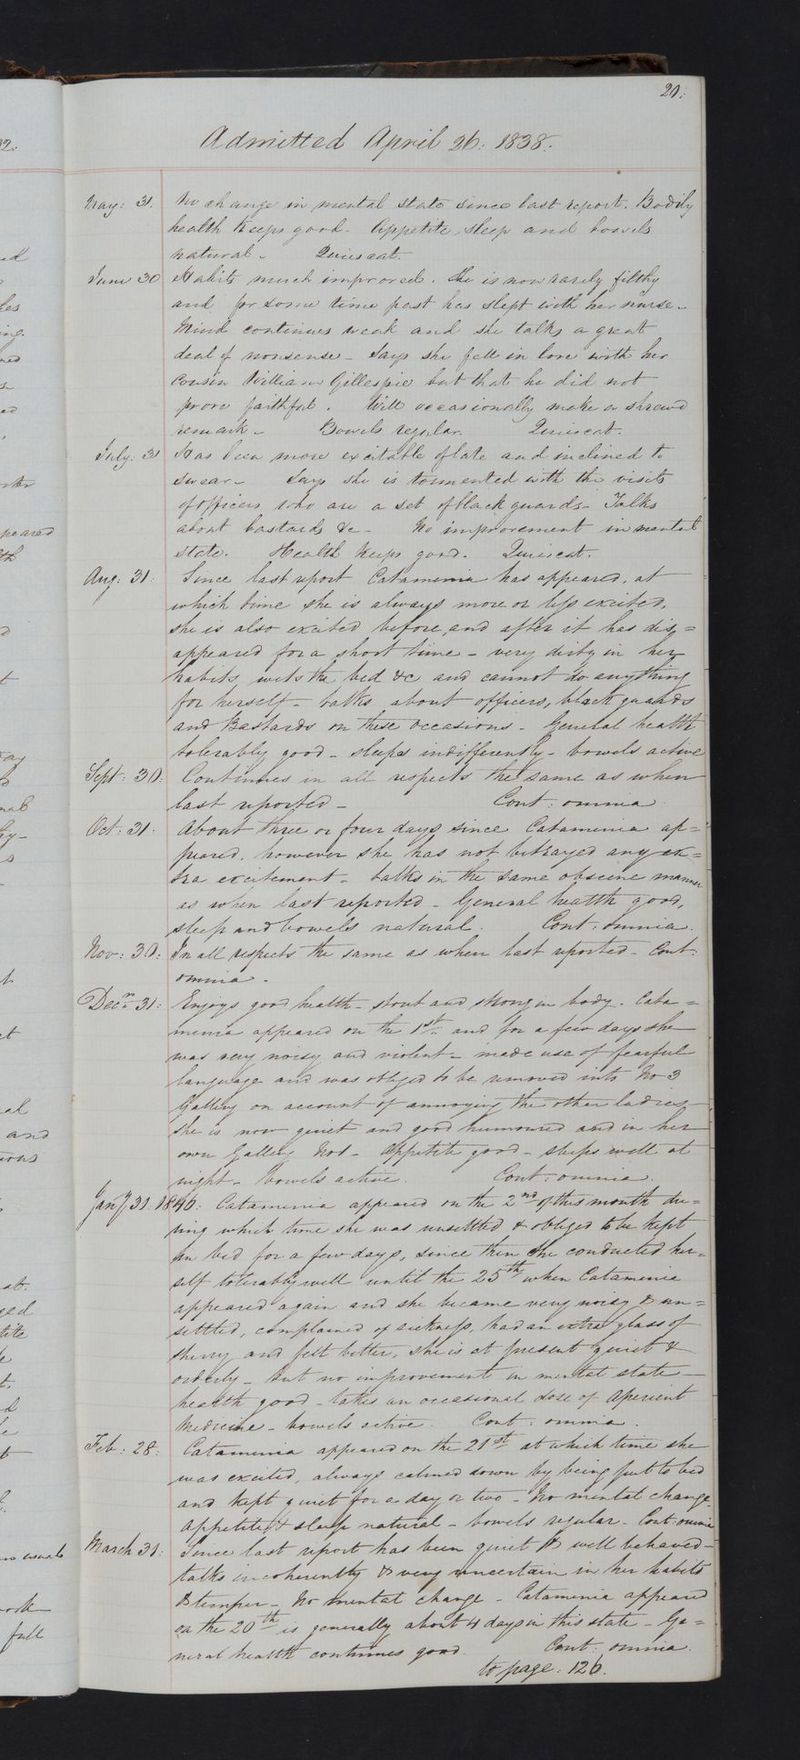 20:
Admitted April 26: 1838.
May: 31. No change in mental state since last report. Bodily
health keeps good. Appetite, sleep and bowels
natural. Quiescat.
June 30 Habits much improved. She is now rarely filthy
and for some time past has slept with her nurse.
Mind continues weak and she talks a great
deal of nonsense - Says she fell in love with her
Cousin William Gillespie but that he did not
prove faithful. Will occasionally make a shrewd
remark - Bowels regular. Quiescat.
July: 31 Has been more excitable of late and inclined to
swear - Says she is tormented with the visits
of officers who are a set of blackguards - Talks
about bastards &c - No improvement in mental
state. Health keeps good. Quiescat.
Aug: 31: Since last report Catamenia has appeared, at
which time she is always more or less excited,
she is also excited before, and after it has dis=
appeared for a short time - very dirty in her
habits, wets the bed &c and cannot do anything
for herself - talks about officers, blackguards
and Bastards on these occasions - General health
tolerably good - sleeps indifferently - bowels active
Sept: 30: Continues in all respects the same as when
last reported - Cont: omnia
Oct: 31: About three or four days since Catamenia ap=
peared, however she has not betrayed any ex=
tra excitement - talks in the same obscene manner
as when last reported - General health good,
sleep and bowels natural. Cont: omnia.
Nov: 30: In all respects the same as when last reported - Cont:
omnia.
Decr 31: Enjoys good health - stout and strong in body. Cata=
menia appeared on the 1st and for a few days she
was very noisy and violent - made use of fearful
language and was obliged to be removed into No 3
Gallery on account of annoying the other ladies -
she is now quiet and good humoured and in her
own Gallery No 1 - Appetite good - sleeps well at
night - bowels active. Cont: omnia.
Jany 31 1840: Catamenia appeared on the 2nd of this month du=
ring which time she was unsettled & obliged to be kept
in bed for a few days, since then she conducted her=
self tolerably well until the 25th when Catamenia
appeared again and she became very noisy & un=
settled, complained of sickness, had an extra glass of
sherry and felt better, she is at present quiet &
orderly - but no improvement in mental state -
health good - takes an occasional dose of Aperient
Medicine - bowels active. Cont: omnia.
Feb: 28: Catamenia appeared on the 21st at which time she
was excited, always calmed down by being put to bed
and kept quiet for a day or two - No mental change
appetite & sleep natural - bowels regular - Cont: omnia
March 31: Since last report has been quiet & well behaved -
talks incoherently & very uncertain in her habits
& temper - No mental change - Catamenia appeared
on the 20th is generally about 4 days in this state - Ge=
neral health continues good. Cont: omnia.
to page: 126.